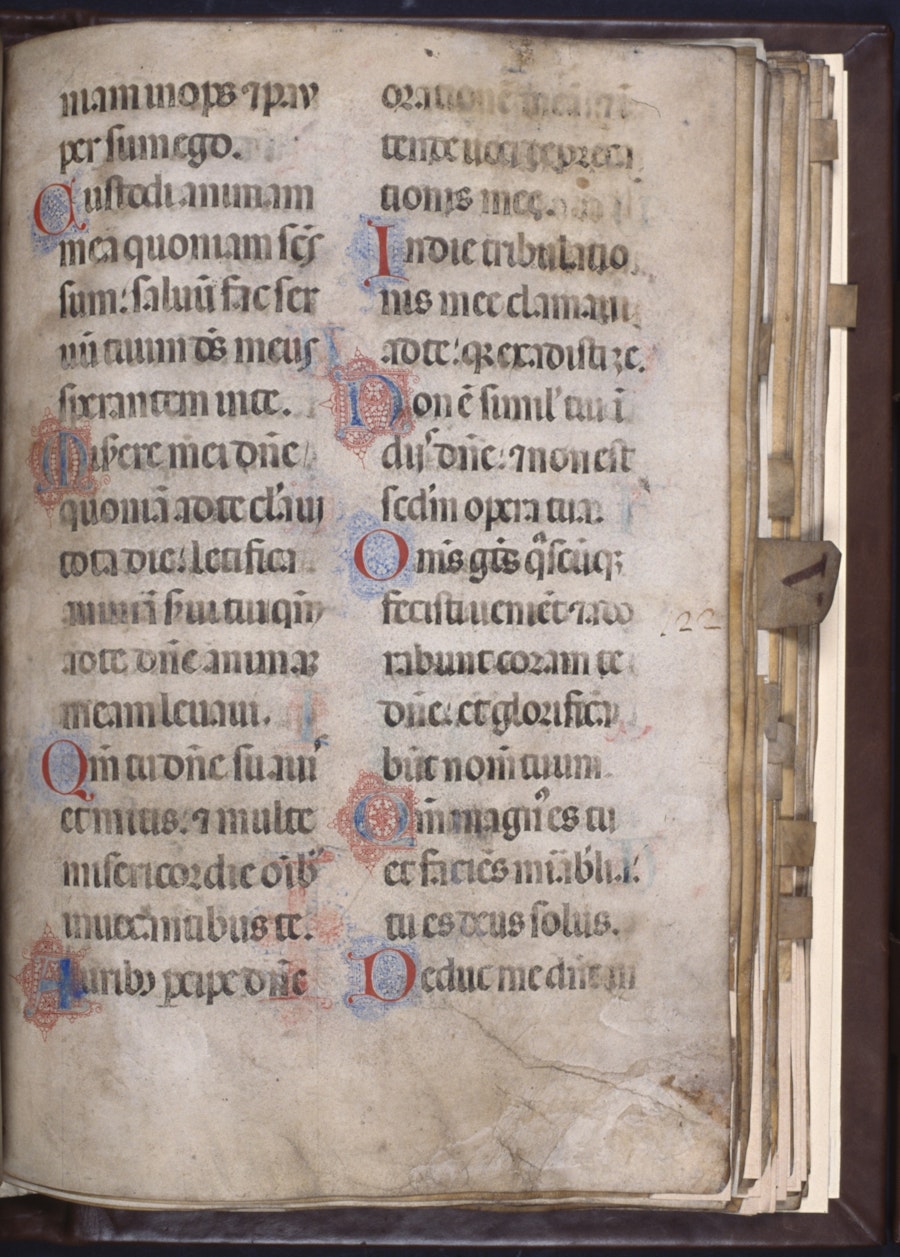 niam inops ⁊ pau
per sum ego.
Custodi animam
meā quoniam scs̄
sum: saluū fac ser
uū tuum ds̄ meus
sperantem in te.
Misere mei dn̄e
quoniā ad te claui
tota die: letifica
animā serui tui qm̄
ad te dn̄e animaꝫ
meam leuaui.
Qm̄ tu dn̄e suauis
et mitis: ⁊ multe
misericordie oīb
inuocantibus te.
Auribꝫ percipe dn̄e
orationē meā: ⁊ ī
tende uoci depreca
tionis mee.
In die tribulatio
nis mee clamaui
ad te: qꝛ exaudisti me.
Non ē simil' tui ī
dijs dn̄e: ⁊ non est
scdm̄ opera tua.
Om̄s gētes q̄scūqꝫ
fecisti ueniēt ⁊ ado
rabunt coram te
dn̄e: et glorifica
būt nom̄ tuum.
Qm̄ magnꝰ es tu
et faciēs mirabīlia:
tu es deus solus.
Deduc me dn̄e in
122